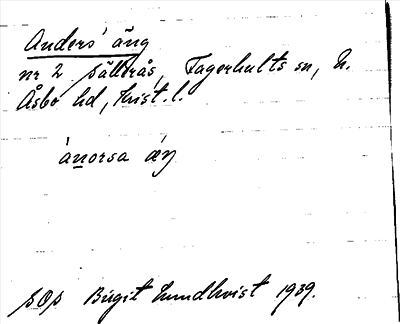 Anders' äng
nr 2 Sällerås, Fagerhults sn, N.
Åsbo hd, Krist. l.
`anorsa æŋ
sOs Birgit Lundkvist 1939.